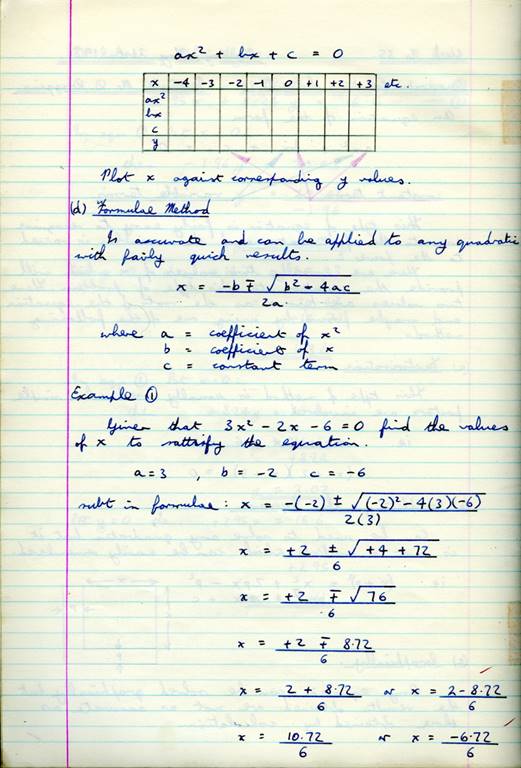 ax² + bx + c = 0
x -4 -3 -2 -1 0 +1 +2 +3 etc.
ax²
bx
c
y
Plot x against corresponding y values.
(d) Formulae Method
Is accurate and can be applied to any quadratic
with fairly quick results.
x = -b ∓ √(b² - 4ac) / 2a
where a = coefficient of x²
b = coefficient of x
c = constant term
Example ①
Given that 3x² - 2x - 6 = 0 find the values
of x to sattisify the equation.
a = 3 , b = -2 c = -6
subt in formulae : x = -(-2) ± √((-2)² - 4(3)(-6)) / 2(3)
x = +2 ± √(+4 + 72) / 6
x = +2 ∓ √76 / 6
x = +2 ∓ 8.72 / 6
x = 2 + 8.72 / 6 or x = 2 - 8.72 / 6
x = 10.72 / 6 or x = -6.72 / 6